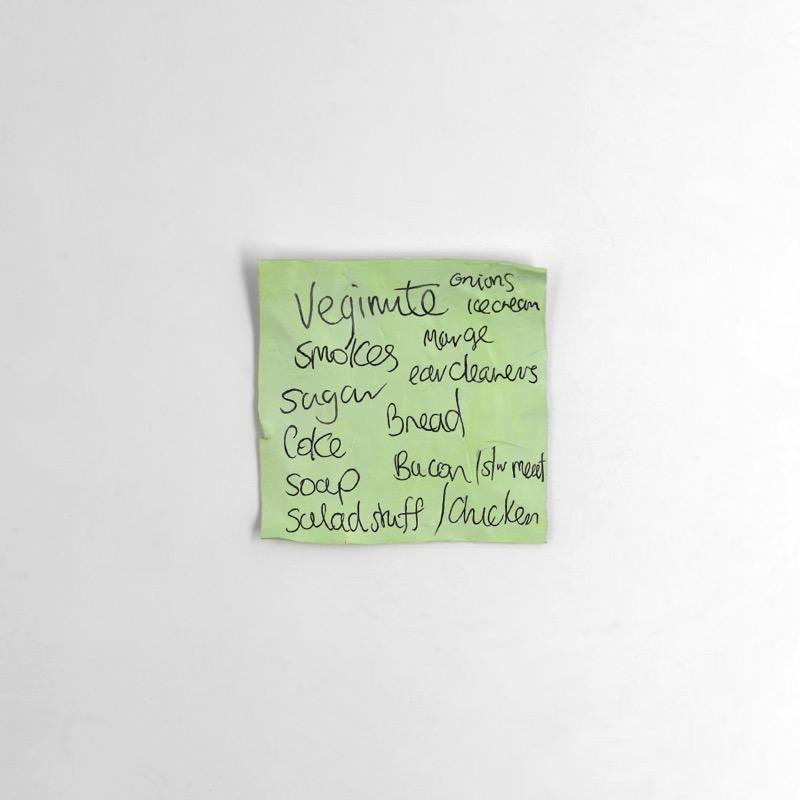 Vegimite
smokes
sugar
Coke
soap
salad stuff / Chicken
onions
icecream
Marge
ear cleaners
Bread
Bacon / meat